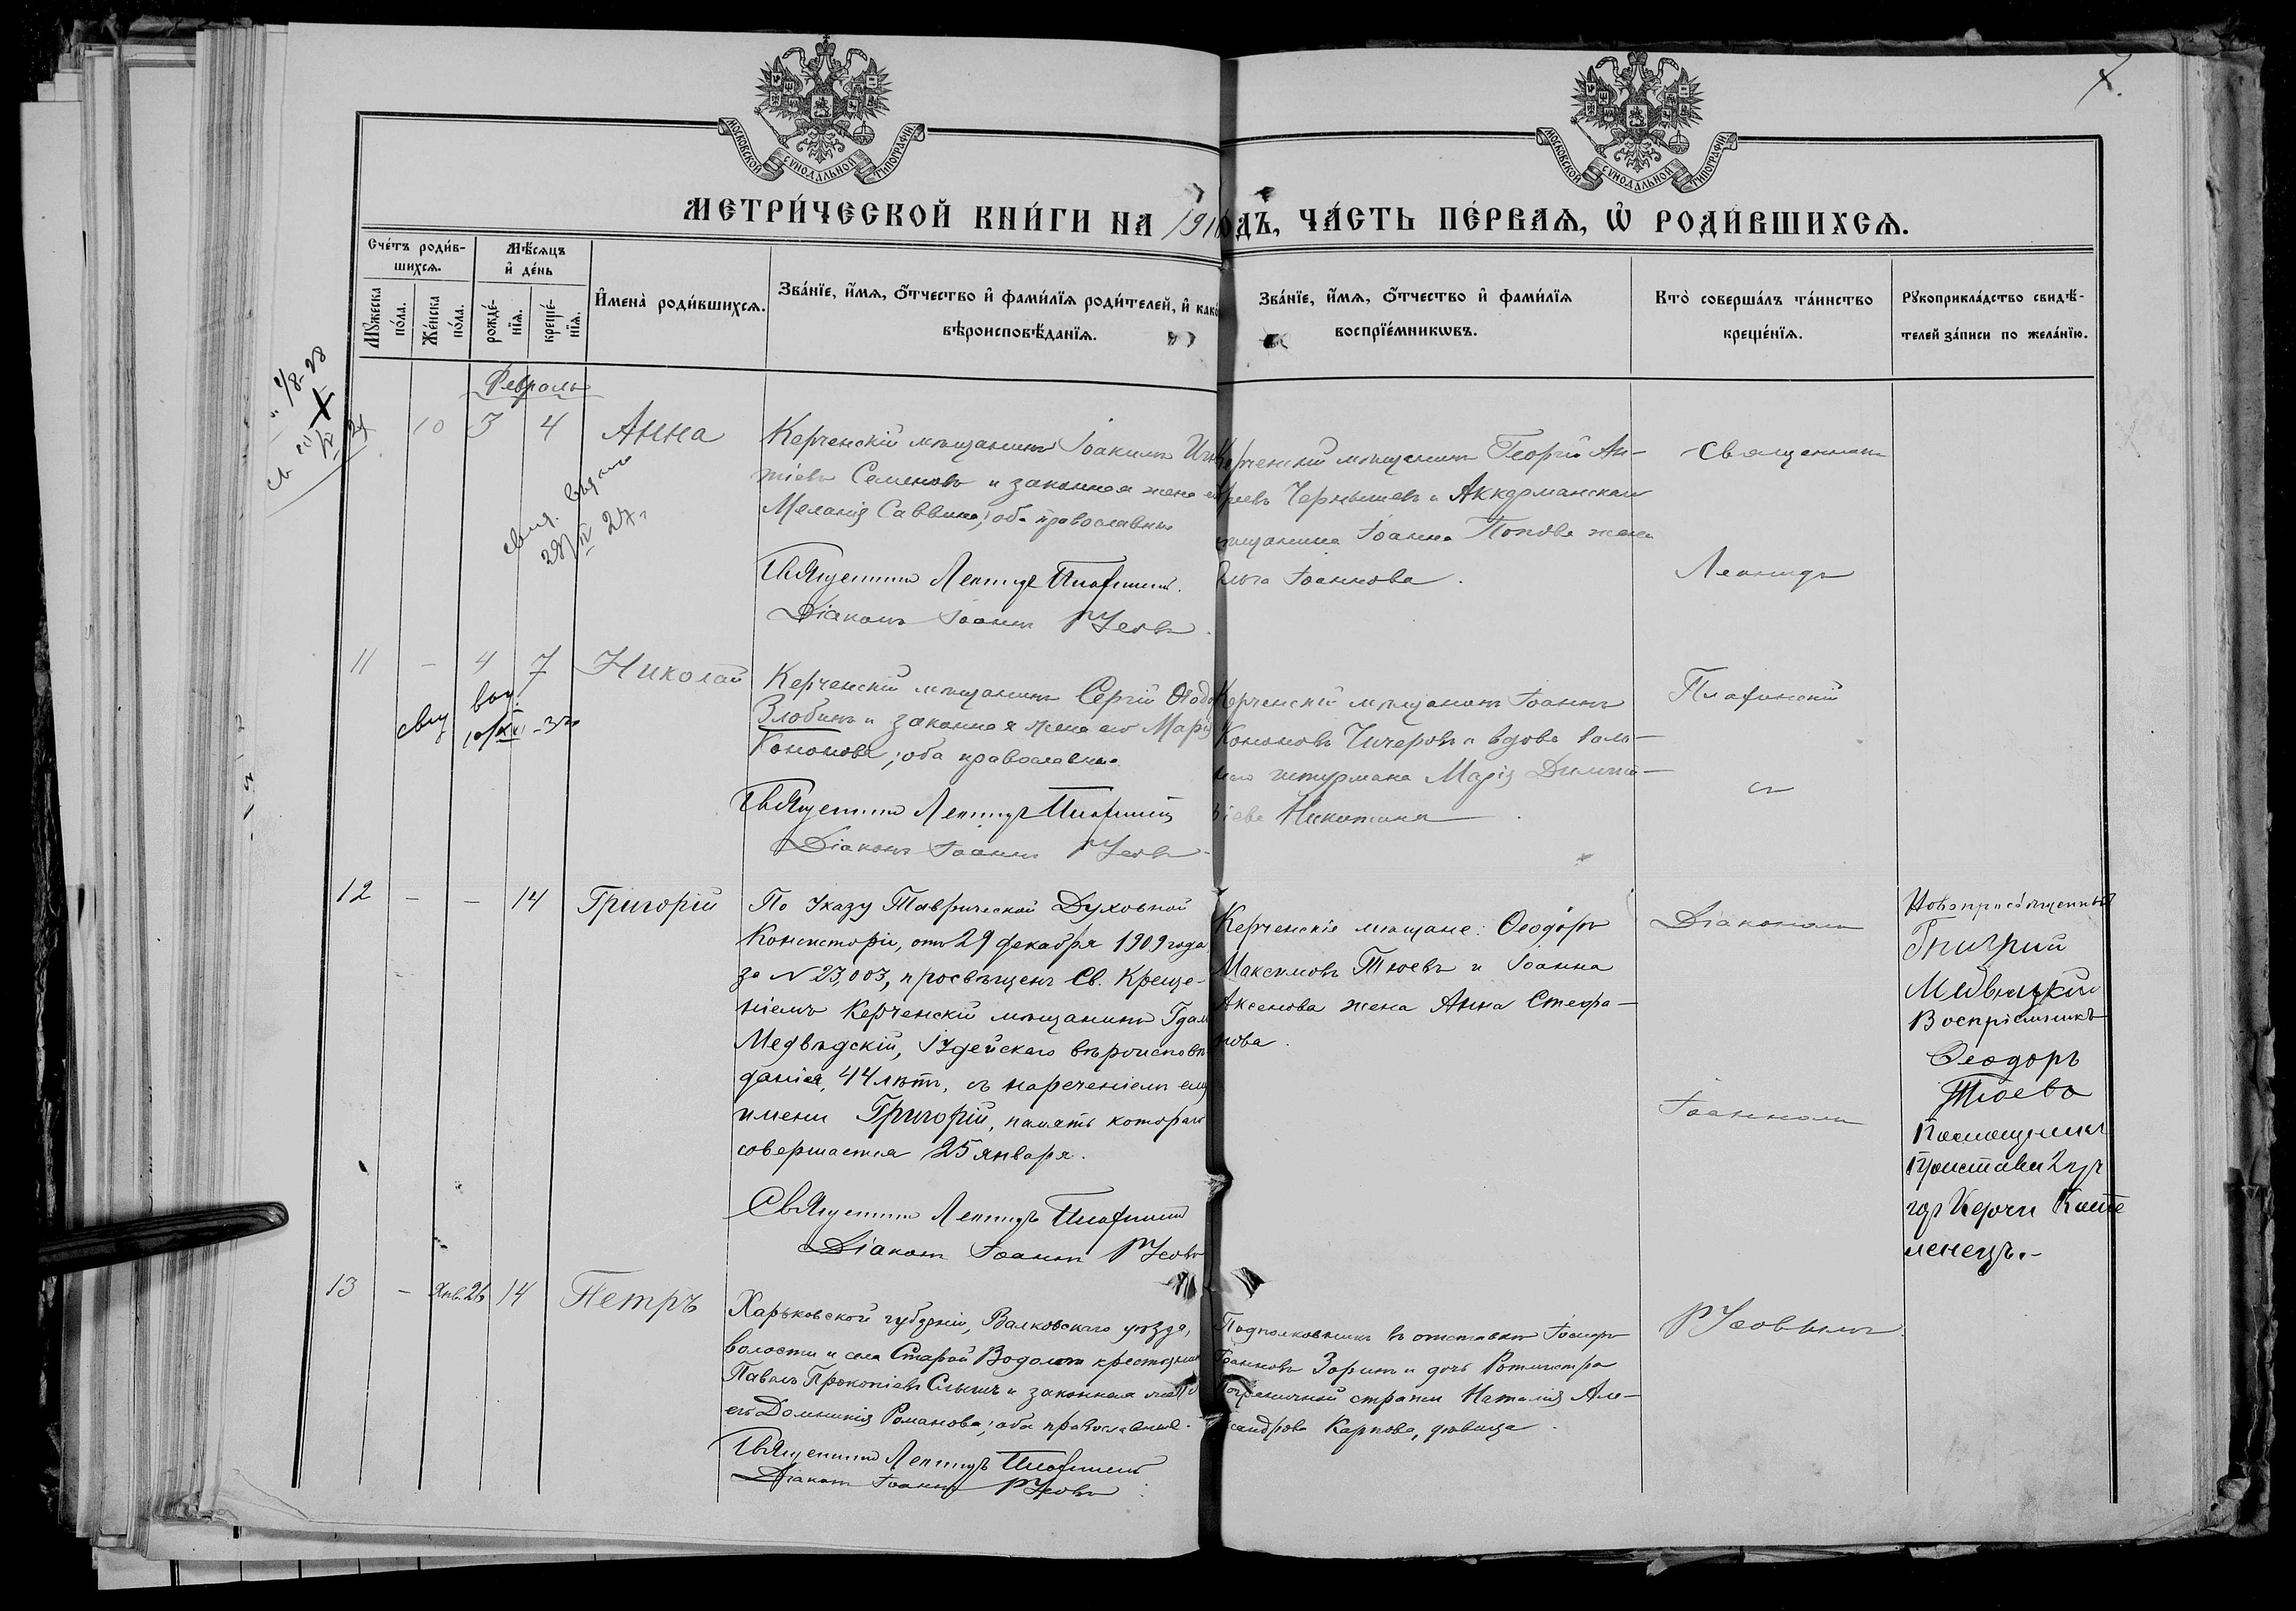 МОСКОВСКОЙ СѴНОДАЛЬНОЙ ТИПОГРАФІИ
МОСКОВСКОЙ СѴНОДАЛЬНОЙ ТИПОГРАФІИ
МЕТРИ́ЧЕСКОЙ КНИ́ГИ НА 191
ОДЪ, ЧА́СТЬ ПЕ́РВАѦ, Ѡ҆ РОДИ́ВШИХСѦ.
Сче́тъ роди́в-
шихсѧ.
Мѣ́сѧцъ
и҆ де́нь
Мꙋ́жеска
по́ла.
Же́нска
по́ла.
рожде́-
нїѧ.
креще́-
нїѧ.
И҆мена̀ роди́вшихсѧ.
Зва́нїе, и҆́мѧ, ѻ҆́тчество и҆ фами́лїѧ роди́телей, и҆ како
вѣроисповѣ́данїѧ.
Зва́нїе, и҆́мѧ, ѻ҆́тчество и҆ фами́лїѧ
воспрїе́мникѡвъ.
Кто̀ соверша́лъ та́инство
креще́нїѧ.
Рꙋкоприкла́дство свидѣ́-
телей за́писи по жела́нїю.
Февраль
10 3 4 Анна
Керченскій мѣщанинъ Іоакимъ
тіевъ Семеновъ и законная жена
Меланія Саввина; оба православные
Священникъ Леонидъ Плафинскій.
Діаконъ Іоаннъ Усовъ.
свид. выдано
28/IV 27 г
Керченскій мѣщанинъ Георгій Ан-
дреевъ Чернышевъ и Аккерманскаго
мѣщанина Іоанна Попова жена
Ольга Іоаннова.
Священникъ
Леонидъ
11 - 4 7 Николай
Керченскій мѣщанинъ Сергій Ѳеодо
Злобинъ и законная жена его Марія
Кононова; оба православные.
Священникъ Леонидъ Плафинскій
Діаконъ Іоаннъ Усовъ.
Керченскій мѣщанинъ Іоаннъ
Кононовъ Чичеровъ и вдова воль-
наго штурмана Марія Димит-
ріева Никитина
Плафинскій
съ
12 - - 14 Григорій
По Указу Таврической Духовной
Консисторіи, отъ 29 декабря 1909 года,
за № 23,003, просвѣщенъ Св. Креще-
ніемъ Керченскій мѣщанинъ Гдал
Медвѣдскій, Іудейскаго вѣроисповѣ
данія, 44 лѣтъ, съ нареченіемъ ему
имени Григорій, память котораго
совершается 25 января.
Священникъ Леонидъ Плафинскій
Діаконъ Іоаннъ Усовъ
Керченскіе мѣщане: Ѳеодоръ
Максимовъ Тюевъ и Іоанна
Аксенова жена Анна Стефа-
нова.
Діакономъ
Іоанномъ
Новопросвѣщенный
Григорий
Медвѣдский
Воспріемникъ
Ѳеодоръ
Тюевъ
Помощникъ
Пристава 2 уч
гор Керчи
13 - Янв. 26 14 Петръ
Харьковской губерніи, Валковскаго уѣзда,
волости и села Старой Водолаги крестьянинъ
Павелъ Прокопіевъ и законная жена
его Домникія Романова; оба православные.
Священникъ Леонидъ Плафинскій
Діаконъ Іоаннъ Усовъ
Подполковникъ въ отставкѣ Іосифъ
Іоанновъ Зоринъ и дочь Ротмистра
Пограничной стражи Наталія Але-
ксандрова Карпова, дѣвица.
Усовымъ.